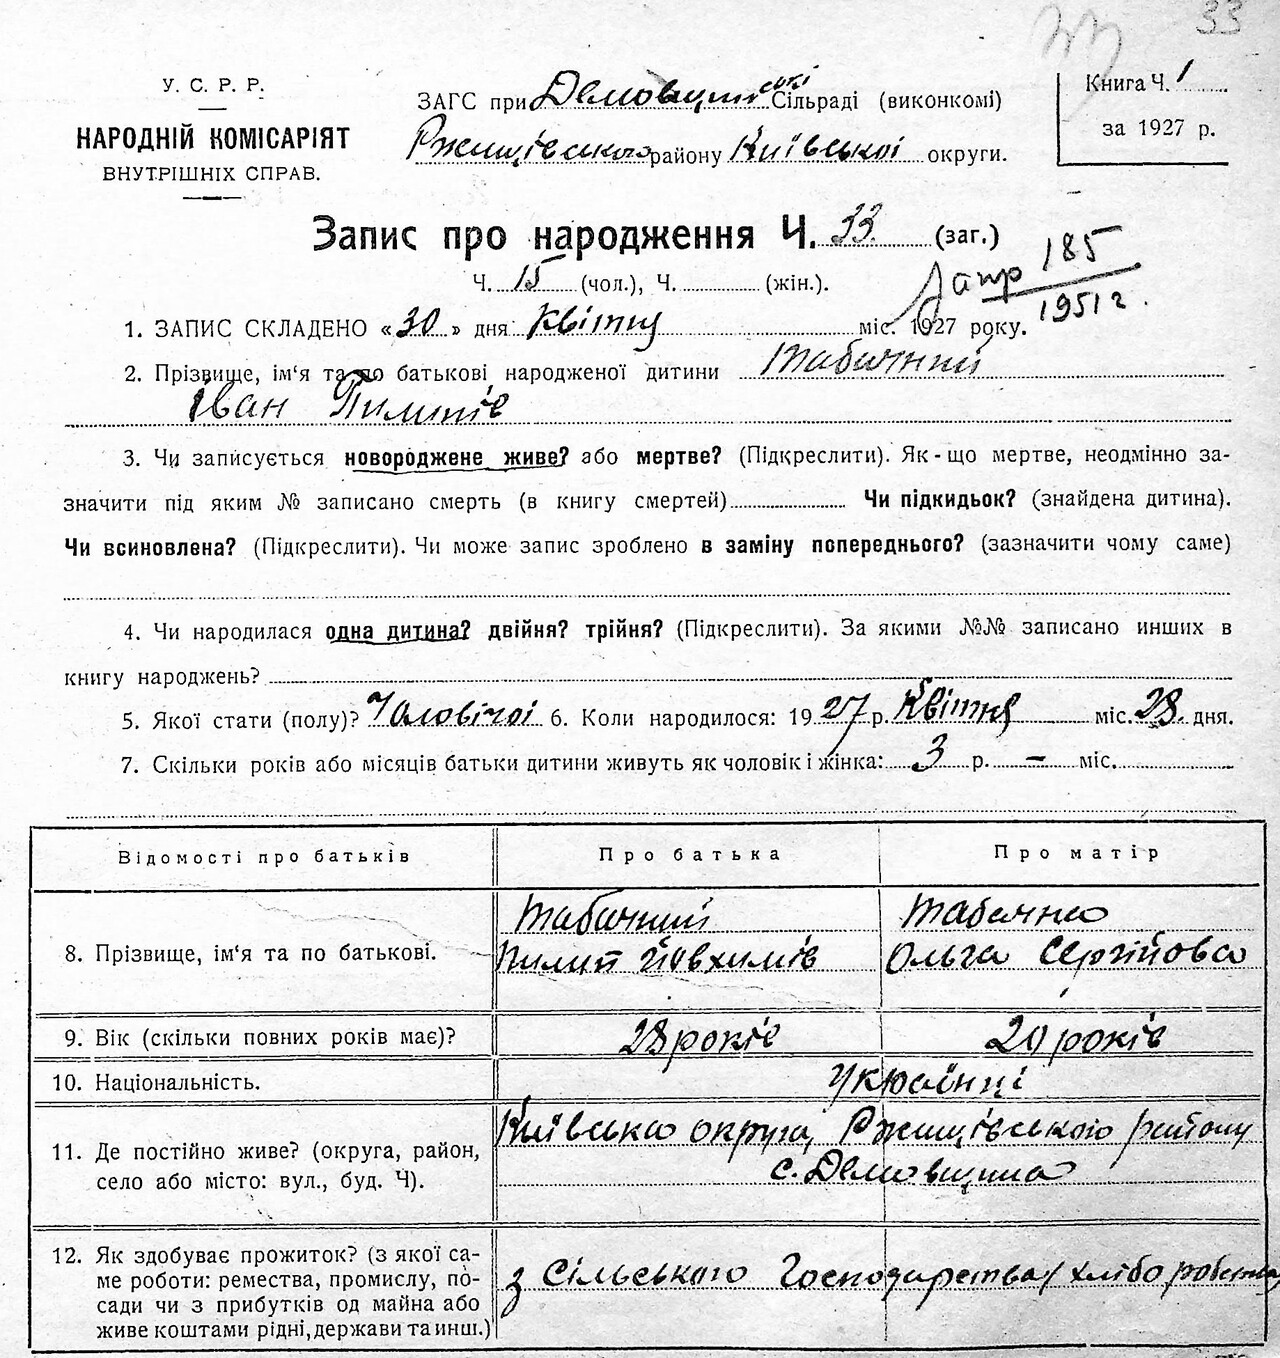 33
У. С. Р. Р.
НАРОДНІЙ КОМІСАРІЯТ
ВНУТРІШНІХ СПРАВ.
ЗАГС при Демовщинській Сільраді (виконкомі)
Ржищівського району Київської округи.
Книга Ч. 1
за 1927 р.
Запис про народження Ч. 33. (заг.)
Ч. 15 (чол.), Ч. (жін.).
Запр 185
1951 г.
1. ЗАПИС СКЛАДЕНО «30» дня Квітня міс. 1927 року.
2. Прізвище, ім‘я та по батькові народженої дитини Табачний
Іван Пилипів
3. Чи записується новороджене живе? або мертве? (Підкреслити). Як-що мертве, неодмінно за-
значити під яким № записано смерть (в книгу смертей) Чи підкидьок? (знайдена дитина).
Чи всиновлена? (Підкреслити). Чи може запис зроблено в заміну попереднього? (зазначити чому саме)
4. Чи народилася одна дитина? двійня? трійня? (Підкреслити). За якими №№ записано инших в
книгу народжень?
5. Якої стати (полу)? Чоловічої 6. Коли народилося: 1927 р. Квітня міс. 28. дня.
7. Скільки років або місяців батьки дитини живуть як чоловік і жінка: 3 р. – міс.
Відомості про батьків Про батька Про матір
8. Прізвище, ім‘я та по батькові.
Табачний
Пилип Йовхимів
Табачна
Ольга Сергійовна
9. Вік (скільки повних років має)? 28 років 20 років
10. Національність. Українці
11. Де постійно живе? (округа, район,
село або місто: вул., буд. Ч).
Київська округа, Ржищівського району
с. Демовщина
12. Як здобуває прожиток? (з якої са-
ме роботи: ремества, промислу, по-
сади чи з прибутків од майна або
живе коштами рідні, держави та инш.)
з Сільського Господарства /хліборобства/